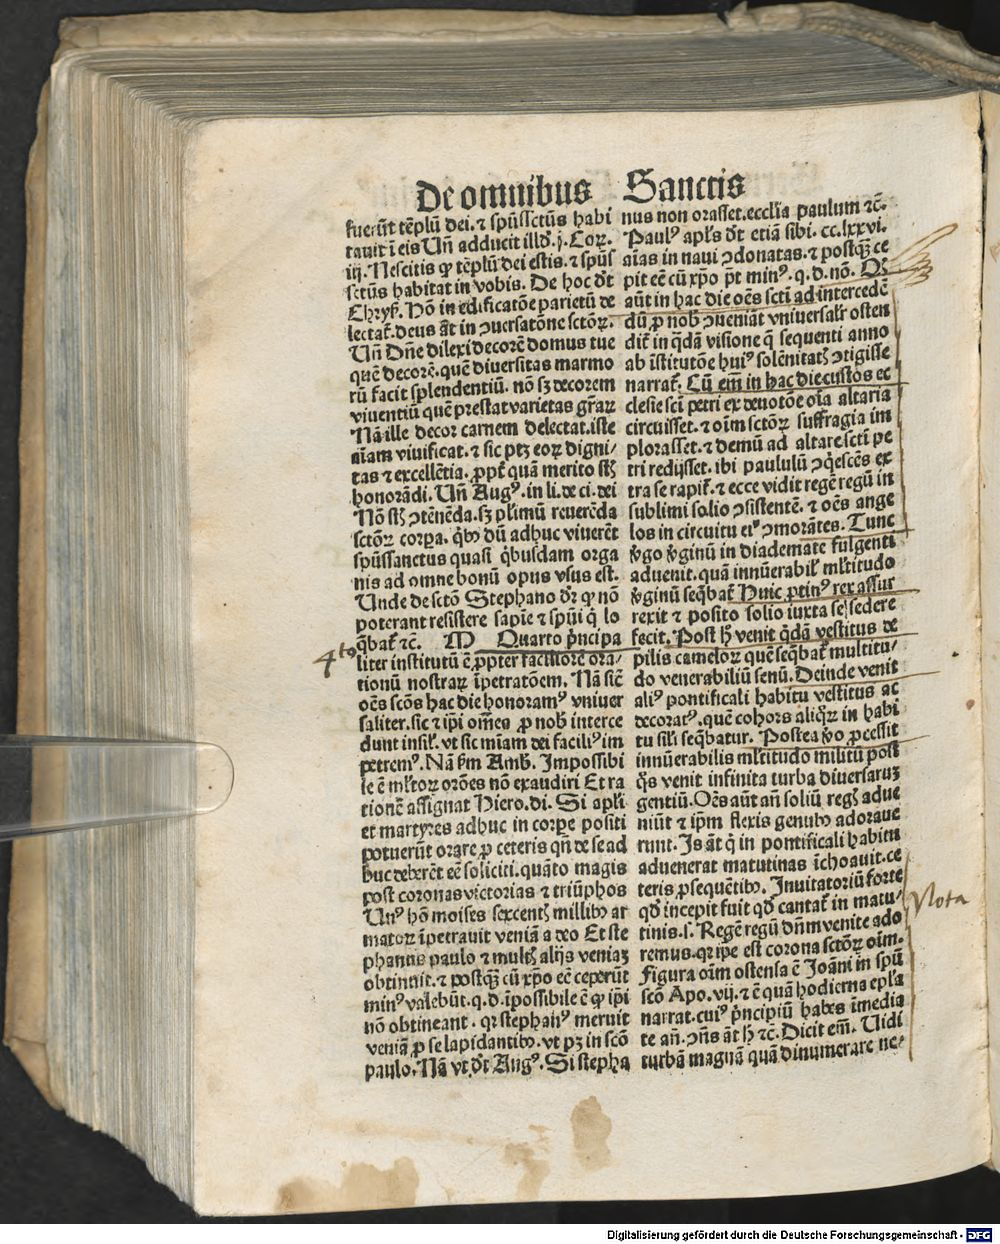 De omnibus Sanctis
fuerūt tēplū dei. ⁊ spūssctūs habi
tauit ī eis Uñ adducit illđ. j. Coꝝ.
iij. Nescitis ꝙ tēplū dei estis. ⁊ spūs
sctūs habitat in vobis. De hoc đt
Chrys̄. Nō in edificatōe parietū de
lectat̄. deus āt in ↄuersatōne sctōꝝ.
Uñ Dñe dilexi decorē domus tue
quē decorē. quē diuersitas marmo
rū facit splendentiū. nō sꝫ decorem
viuentiū quē prestat varietas gr̄aꝝ
Nā ille decor carnem delectat. iste
aīam viuificat. ⁊ sic ptꝫ eoꝝ digni⸗
tas ⁊ excellētia. ꝓpt̄ quā merito st̄
honorādi. Uñ Augꝰ. in li. de ci. dei
Nō st̄ ↄtēnēda. sꝫ pl̄imū reuerēda
sctōꝝ corꝑa. qͥbꝰ dū adhuc viuerēt
spūssanctus quasi qͥbusdam orga
nis ad omne bonū opus vsus est.
Unde de sctō Stephano đr ꝙ nō
poterant resistere sapīe ⁊ spūi qͥ lo
qͥbat̄ ⁊c̄. M Quarto pͥncipa
4to
liter institutū ē ꝓpter faciliorē ora⸗
tionū nostraꝝ īpetratōem. Nā sic̄
oēs scōs hac die honoramꝰ vniuer
saliter. sic ⁊ ip̄i om̄es ꝓ nob̄ interce
dunt insil̄. vt sic mīam dei faciliꝰ im
petremꝰ. Nā s̄m Amb̄. Impossibi
le ē ml̄toꝝ orōes nō exaudiri Et ra
tionē assignat Hiero. di. Si apl̄i
et martyres adhuc in corꝑe positi
potuerūt orare ꝓ ceteris qñ de se ad
huc deberēt eē soliciti. quāto magis
post coronas victorias ⁊ triūphos
Unꝰ hō moises sexcentꝭ millibꝰ ar
matoꝝ īpetrauit veniā a deo Et ste
phanus paulo ⁊ multꝭ alijs veniaꝫ
obtinuit. ⁊ postqꝫ cū xp̄o eē ceperūt
minꝰ valebūt. q. d. īpossibile ē ꝙ ip̄i
nō obtineant. qꝛ stephanꝰ meruit
veniā ꝓ se lapidantibꝰ. vt pꝫ in scō
paulo. Nā vt đt Augꝰ. Si stepha
nus non orasset. ecclīa paulum ⁊c̄.
Paulꝰ apl̄s đt etiā sibi. cc. lxxvi.
aīas in naui ↄdonatas. ⁊ postqꝫ ce
pit eē cū xp̄o pt̄ minꝰ. q. d. nō. Qđ
aūt in hac die oēs sctī ad intercedē
dū ꝓ nob̄ ↄueniāt vniuersalr̄ osten
dit̄ in qͣdā visione qͣ sequenti anno
ab īstitutōe huiꝰ solēnitatꝭ ↄtigisse
narrat̄. Cū em̄ in hac die custos ec
clesie sctī petri ex deuotōe oīa altaria
circuisset. ⁊ oīm sctōꝝ suffragia im
plorasset. ⁊ demū ad altare sctī pe
tri redijsset. ibi paululū ↄqͥescēs ex
tra se rapit̄. ⁊ ecce vidit regē regū in
sublimi solio ↄsistentē. ⁊ oēs ange
los in circuitu eiꝰ ↄmorātes. Tunc
v̄go v̄ginū in diademate fulgenti
aduenit. quā innūerabil̄ ml̄titudo
v̄ginū seqͥbat̄ Huic ꝓtinꝰ rex assur
rexit ⁊ posito solio iuxta se sedere
fecit. Post h̄ venit qͥdā vestitus de
pilis cameloꝝ quē seqͥbat̄ multitu⸗
do venerabiliū senū. Deinde venit
aliꝰ pontificali habitu vestitus ac
decoratꝰ. quē cohors aliqͦꝝ in habi
tu sil̄i seqͥbatur. Postea v̄o ꝓcessit
innūerabilis ml̄titudo militū post
qͦs venit infinita turba diuersaruꝫ
gentiū. Oēs aūt añ soliū regꝭ adue
niūt ⁊ ip̄m flexis genibꝰ adoraue
runt. Is āt qͥ in pontificali habitu
aduenerat matutinas īchoauit. ce
teris ꝓsequētibꝰ. Inuitatoriū forte
qđ incepit fuit qđ cantat̄ in matu⸗
Nota
tinis. s. Regē regū dñm venite ado
remus. qꝛ ip̄e est corona sctōꝝ oīm.
Figura oīm ostensa ē Joāni in spū
scō Apo. vij. ⁊ ē quā hodierna epl̄a
narrat. cuiꝰ pͥncipiū habes īmedia
te añ. ↄñs āt h̄ ⁊c̄. Dicit em̄. Uidi
turbā magnā quā dinumerare ne⸗
Digitalisierung gefördert durch die Deutsche Forschungsgemeinschaft - DFG